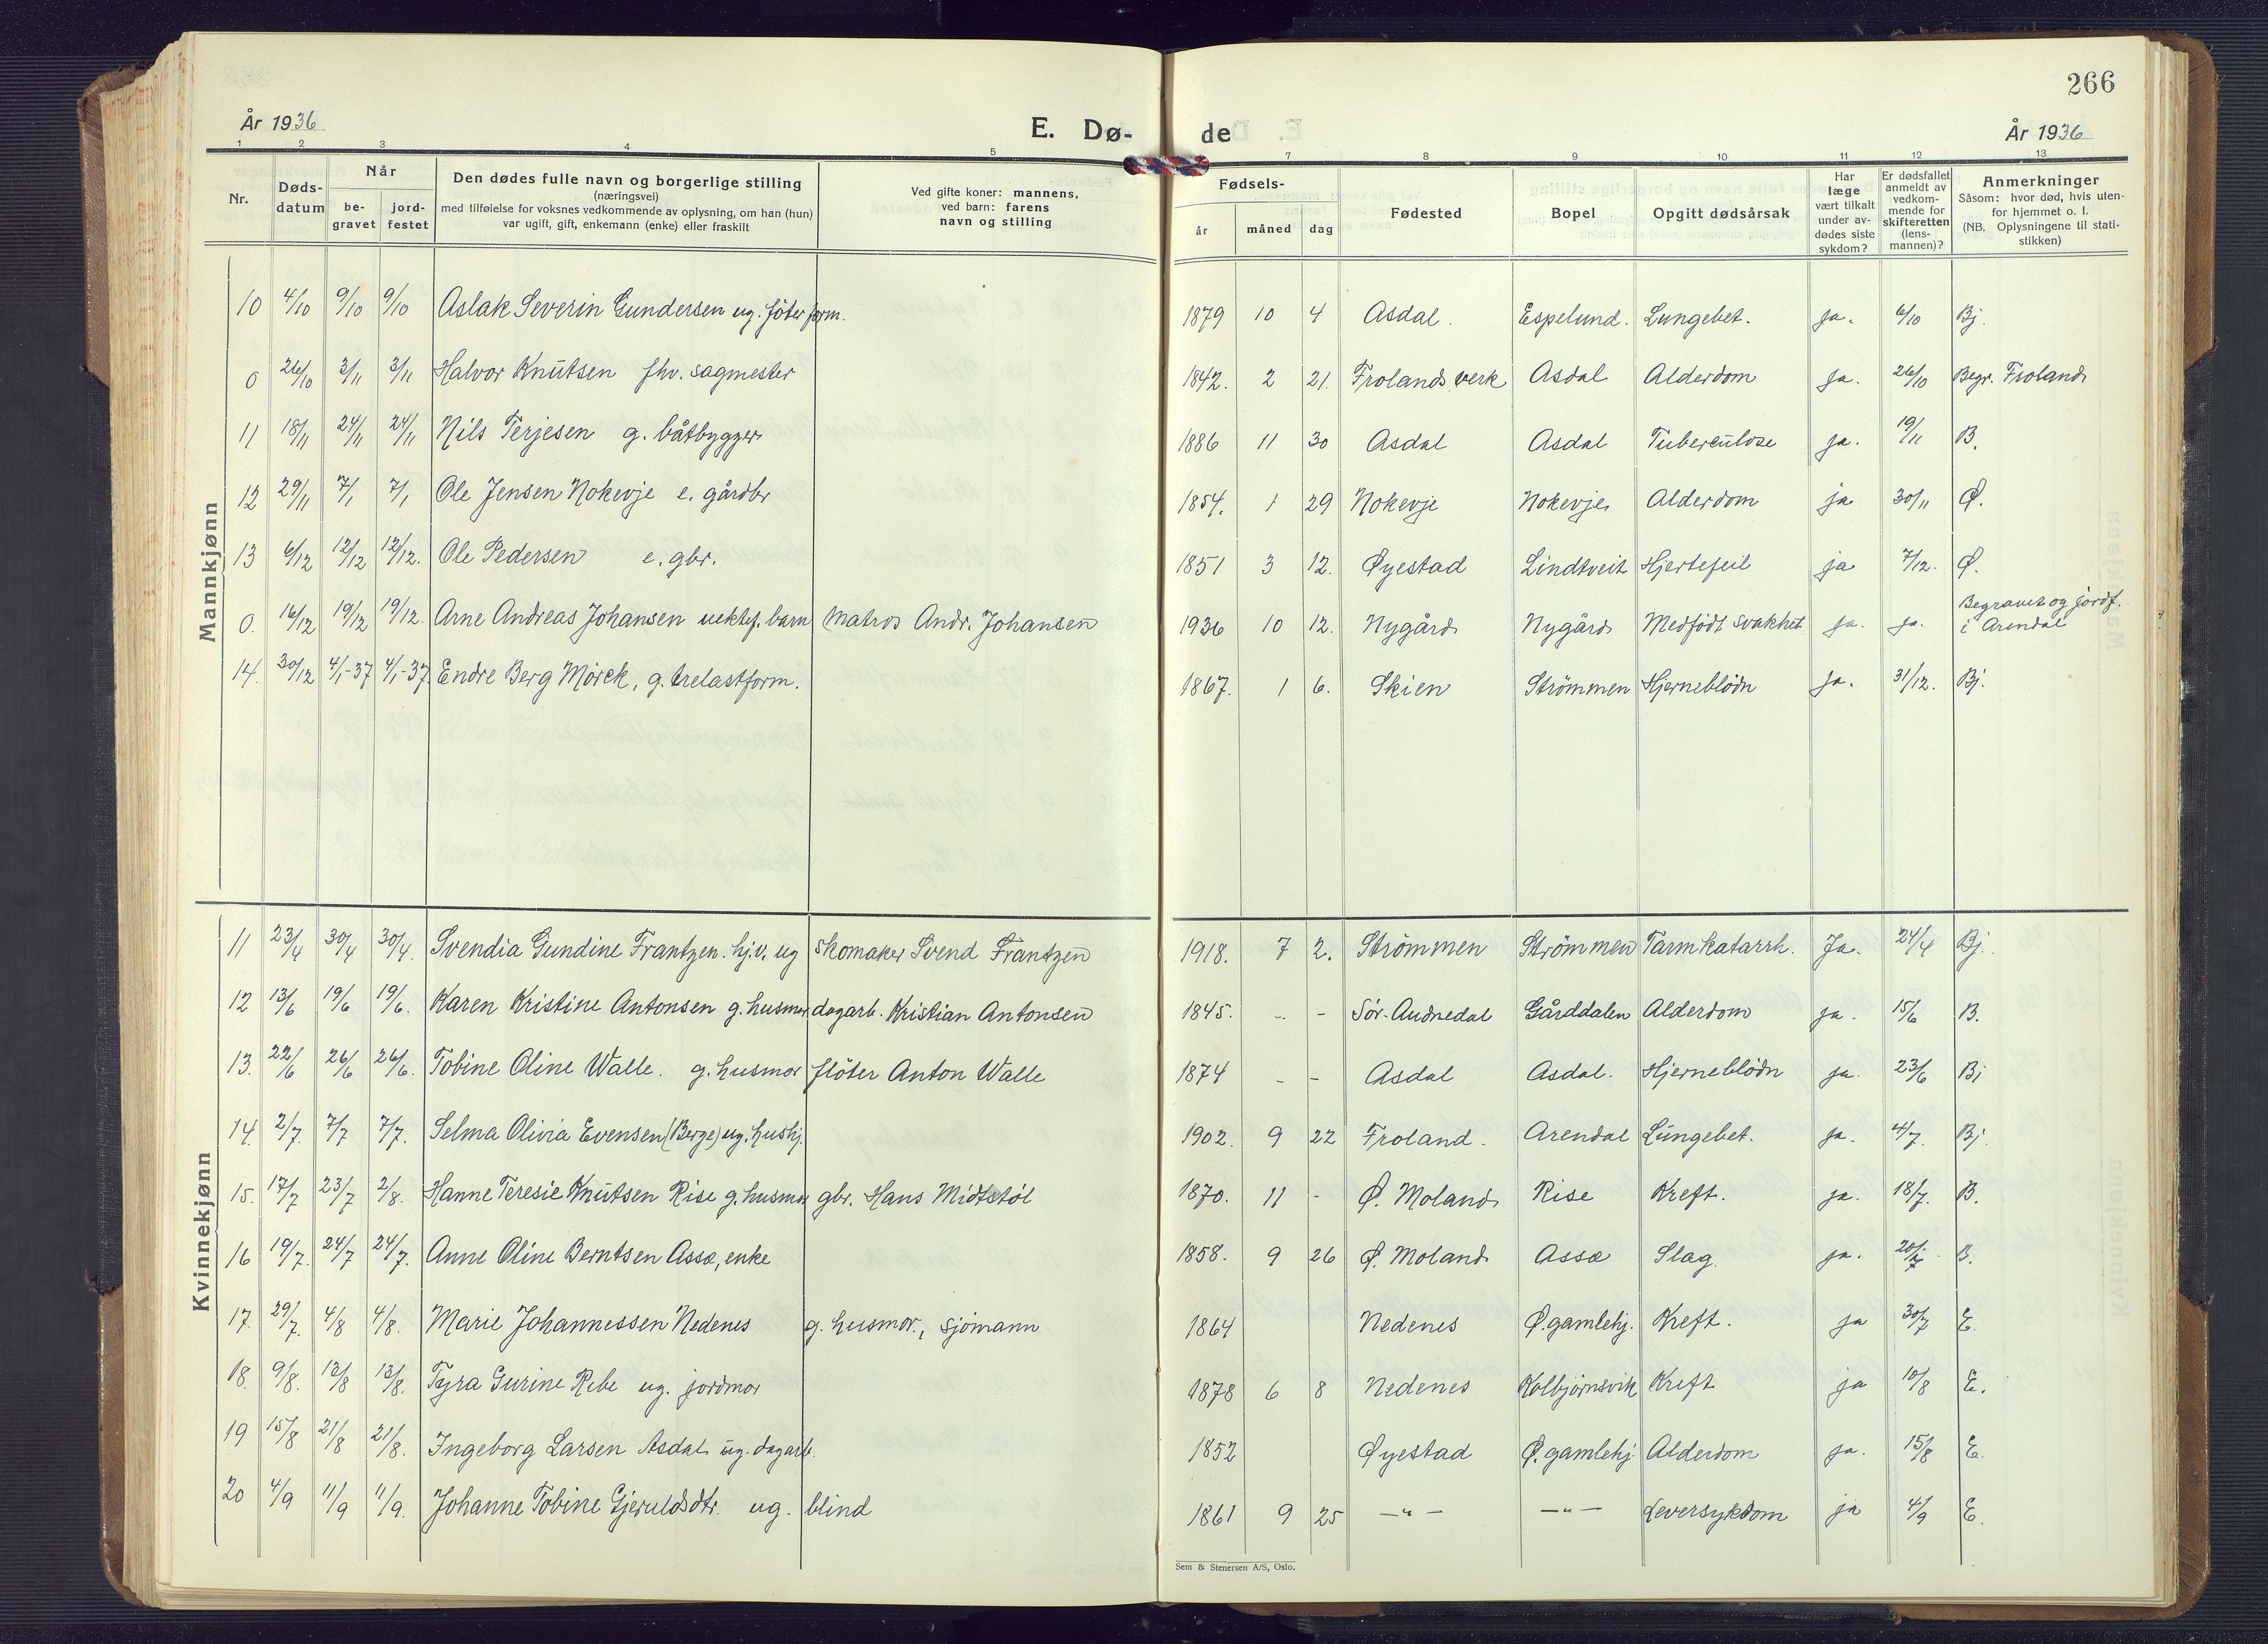 266
År 1936 E. Dø- de År 1936
1 2 3 4 5 7 8 9 10 11 12 13
Nr. Døds-datum Når be-gravet jord-festet Den dødes fulle navn og borgerlige stilling (næringsvei) med tilføielse for voksnes vedkommende av oplysning, om han (hun) var ugift, gift, enkemann (enke) eller fraskilt Ved gifte koner: mannens, ved barn: farens navn og stilling Fødsels- år måned dag Fødested Bopel Opgitt dødsårsak Har læge vært tilkalt under av-dødes siste sykdom? Er dødsfallet anmeldt av vedkom-mende for skifteretten (lens-mannen)? Anmerkninger Såsom: hvor død, hvis uten-for hjemmet o. l. (NB. Oplysningene til stati-stikken)
Mannkjønn
10 4/10 9/10 9/10 Aslak Severin Gundersen ug. föterform. 1879 10 4 Asdal. Espelund. Lungebet. ja. 6/10 Bj.
0 26/10 3/11 3/11 Halvor Knutsen fhv. sagmester 1842. 2 21. Frolands verk Asdal Alderdom ja. 26/10 Begr. Froland
11 18/11 24/11 24/11 Nils Terjesen g. båtbygger 1886 11 30 Asdal Asdal Tuberculose ja. 19/11 B.
12 29/11 7/1 7/1 Ole Jensen Nokevje e. gårdbr 1854. 1 29 Nokevje Nokevje Alderdom ja 30/11 Ø.
13 6/12 12/12 12/12. Ole Pedersen e. gbr. 1851 3 12. Øyestad Lindtveit Hjertefeil ja 7/12. Ø.
0. 16/12 19/12 19/12. Arne Andreas Johansen uektef. barn matros Andr. Johansen 1936 10 12. Nygård Nygård Medfödt svakhet ja. ja. Begravet og jordf. i Arendal
14. 30/12 4/1-37 4/1-37. Endre Berg Mörck, g. trelastform. 1867. 1 6. Skien Strömmen Hjerneblödn ja. 31/12. Bj.
Kvinnekjønn
11 23/4 30/4 30/4. Svendia Gundine Frantzen. hj.v. ug skomaker Svend Frantzen 1918. 7 2. Strömmen Strömmen Tarmkatarrh. Ja. 24/4 Bj.
12 13/6 19/6 19/6. Karen Kristine Antonsen g. husmor dagarb. Kristian Antonsen 1845. - - Sör-Audnedal Gårddalen Alderdom ja. 15/6 B.
13. 22/6 26/6 26/6. Tobine Oline Walle. g. husmor flöter Anton Walle 1874 - - Asdal Asdal. Hjerneblödn ja. 23/6 Bj
14. 2/7 7/7 7/7. Selma Olivia Evensen (Berge) ug. hushj. 1902. 9 22 Froland. Arendal Lungebet. ja. 4/7. Bj.
15. 17/7 23/7 2/8. Hanne Teresie Knutsen Rise g. husmor gbr. Hans Midtstöl 1870. 11 - Ø. Moland Rise Kreft. ja. 18/7. B.
16 19/7. 24/7 24/7. Anne Oline Berntsen Assæ, enke 1858. 9 26 Ø. Moland Assæ Slag ja. 20/7. B.
17. 29/7. 4/8 4/8. Marie Johannessen Nedenes g. husmor., sjömann 1864 Nedenes Ø. gamlehj. Kreft. ja 30/7 E.
18. 9/8. 13/8 13/8. Tyra Gurine Ribe ug. jordmor 1878 6 8 Nedenes Kolbjörnsvik Kreft ja 10/8 E.
19 15/8 21/8 21/8. Ingeborg Larsen Asdal ug. dagarb. 1852 Øyestad Ø. gamlehj Alderdom ja. 15/8 E.
20 4/9 11/9 11/9. Johanne Tobine Gjeruldsdtr. ug. blind 1861 9 25 —"— —"— Leversykdom ja 4/9 E.
Sem & Stenersen A/S, Oslo.